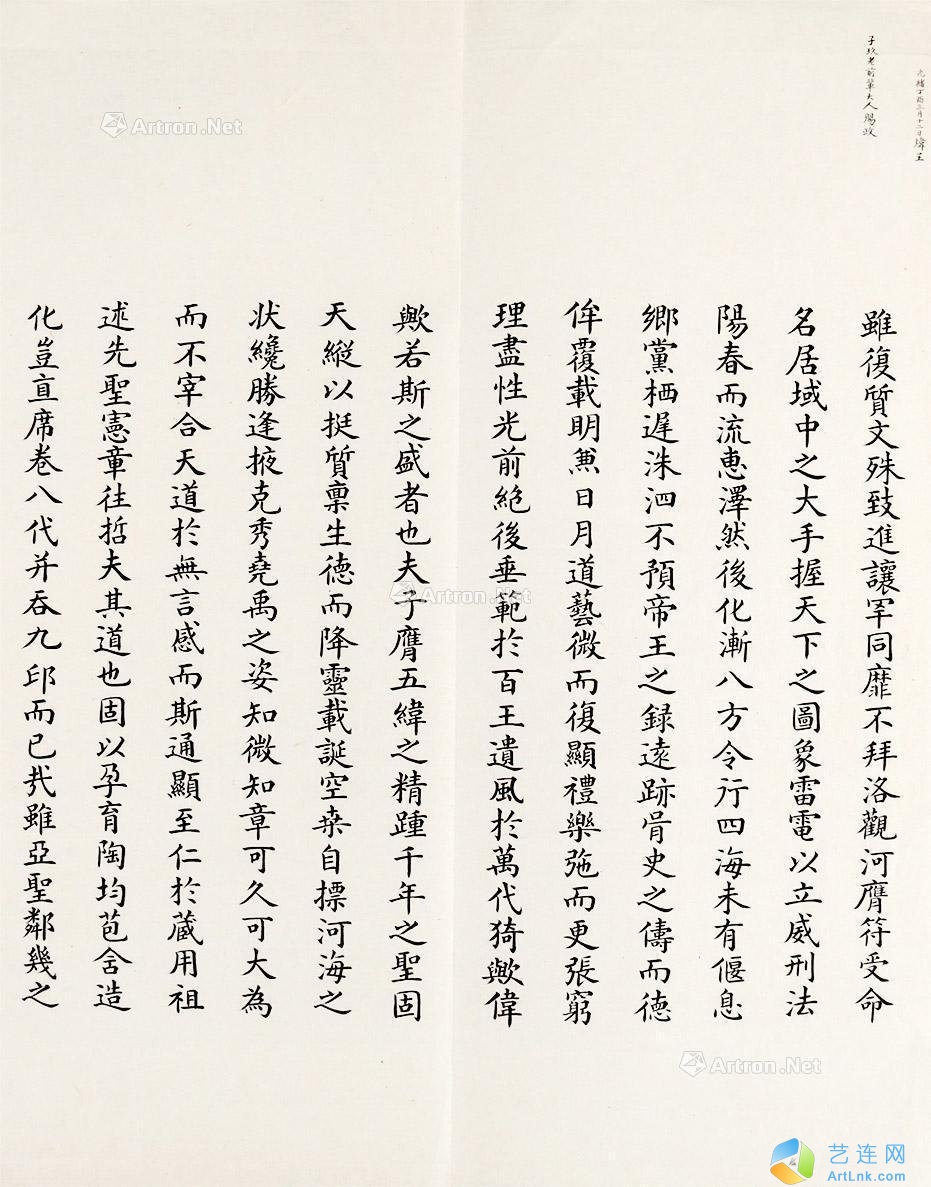 光緒丁酉三月十二日
子玖老前輩大人賜政
雖復質文殊致進讓罕同靡不拜洛觀河膺符受命
名居域中之大手握天下之圖象雷電以立威刑法
陽春而流惠澤然後化漸八方令行四海未有偃息
鄉黨栖遲洙泗不預帝王之録遠跡胥史之儔而德
侔覆載明兼日月道藝微而復顯禮樂弛而更張窮
理盡性光前絕後垂範於百王遺風於萬代猗歟偉
歟若斯之盛者也夫子膺五緯之精踵千年之聖固
天縱以挺質稟生德而降靈載誕空桑自摽河海之
状纔勝逢掖克秀堯禹之姿知微知章可久可大為
而不宰合天道於無言感而斯通顯至仁於藏用祖
述先聖憲章往哲夫其道也固以孕育陶均苞含造
化豈直席卷八代并吞九邱而已㢤雖亞聖鄰幾之
Artron.Net
Artron.Net
Artron.Net
艺连网
ArtLnk.com